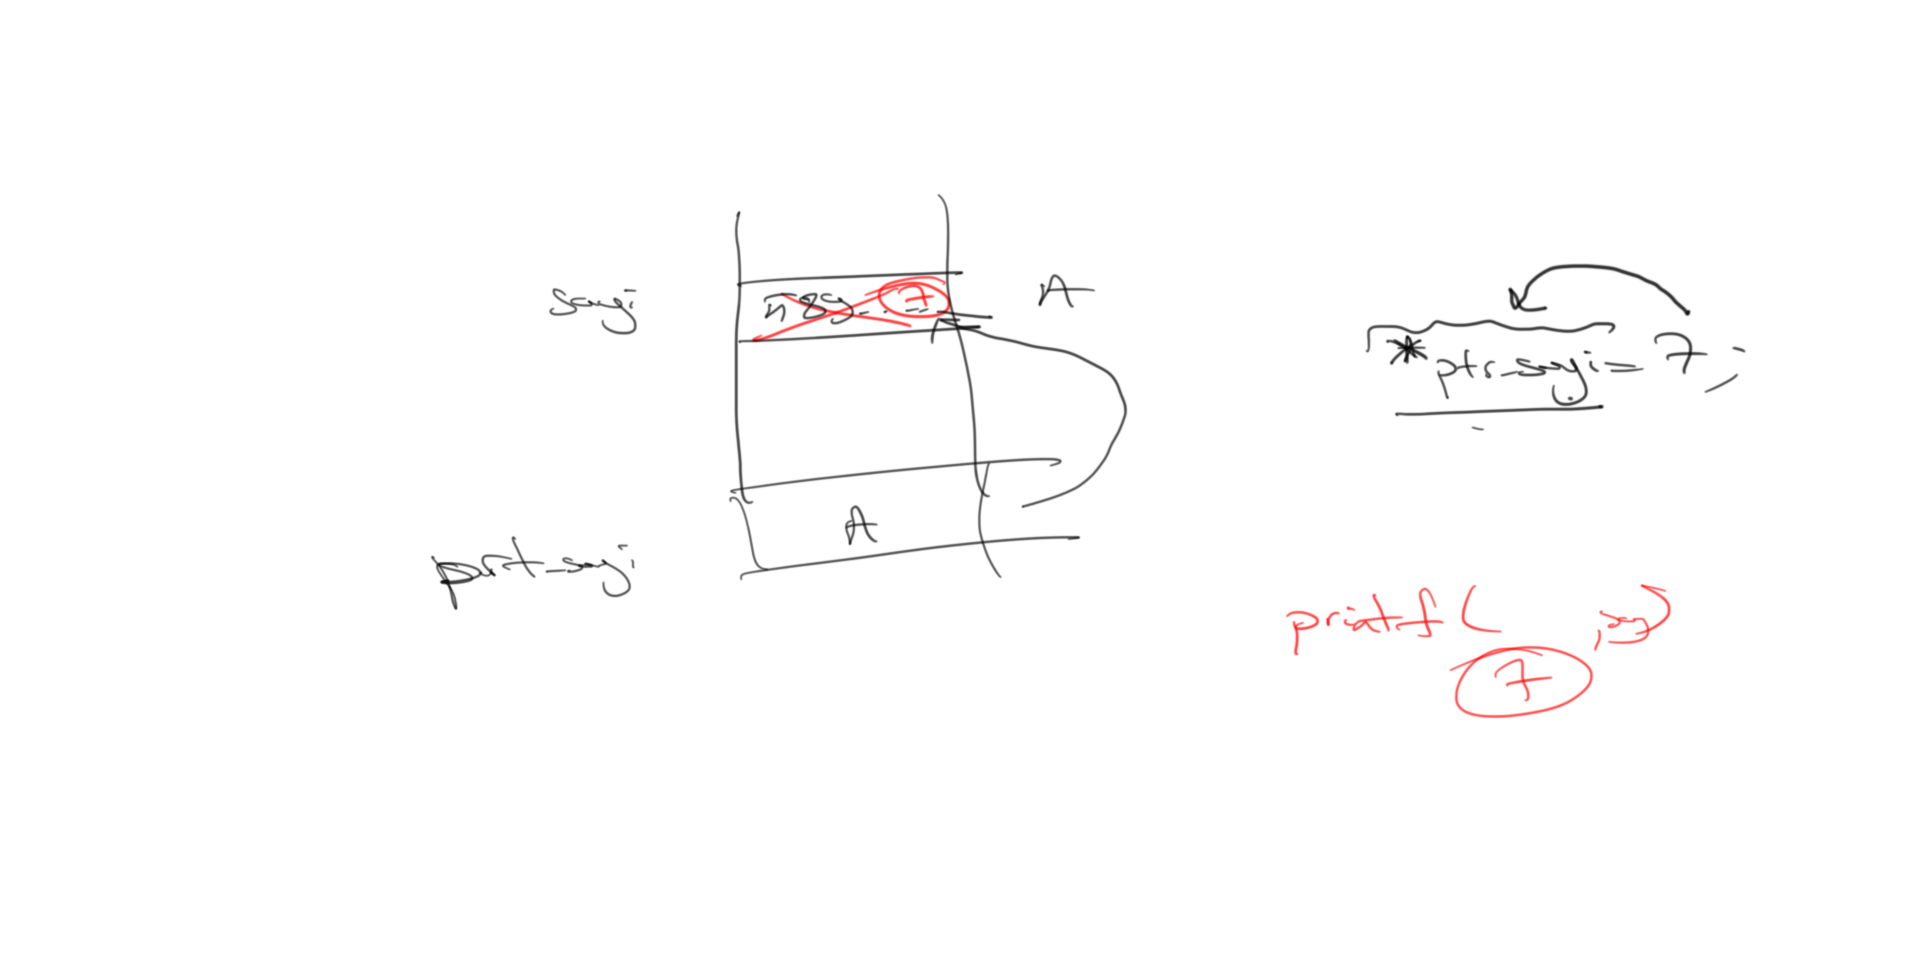 sayi
7
A
*ptr_sayi = 7;
A
prt_sayi
printf (      , say)
7